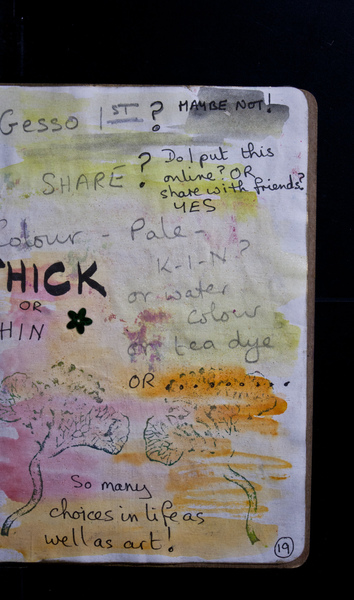 Gesso 1ST ? MAYBE NOT!
SHARE ? Do I put this
online? OR
share with friends?
YES
Colour - Pale -
K-I-N?
THICK
or water
OR
colour
THIN
or tea dye
OR
So many
choices in life as
well as art!
19